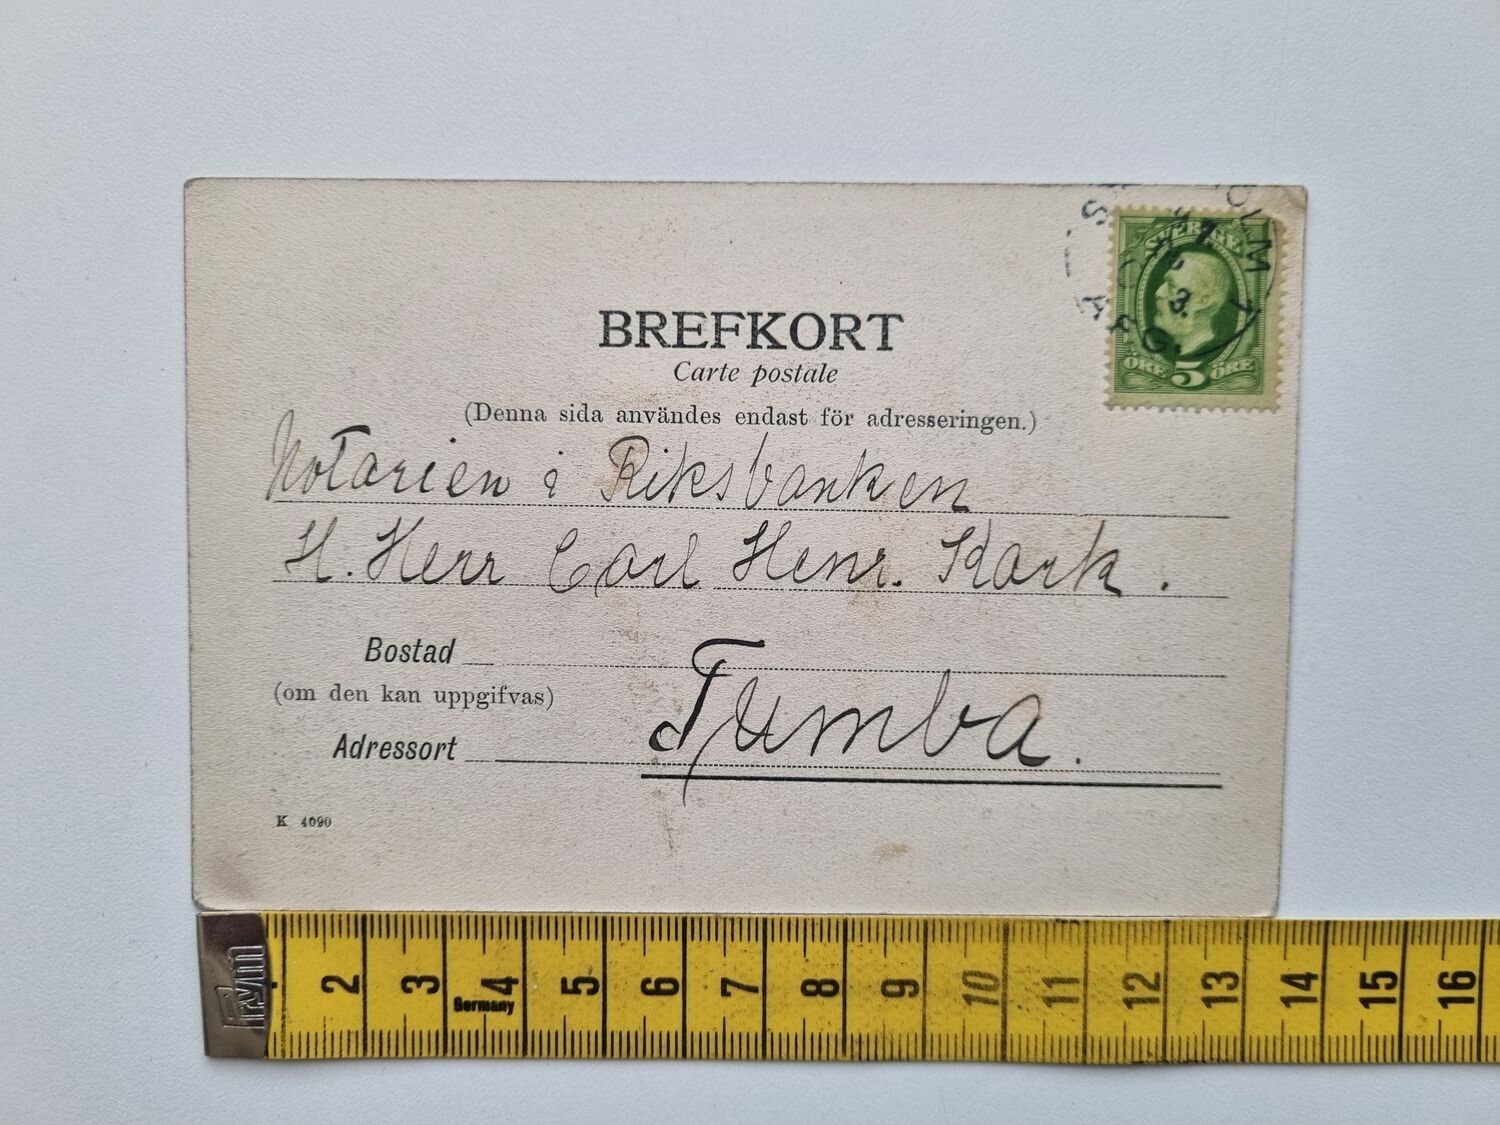 BREFKORT
Carte postale
(Denna sida användes endast för adresseringen.)
Notarien i Riksbanken
H. Herr Carl Henr. Kark.
Bostad
(om den kan uppgifvas)
Tumba.
Adressort
K 4090
SVERIGE
ÖRE 5 ÖRE
Prym
2 3 4 5 6 7 8 9 10 11 12 13 14 15 16
Germany